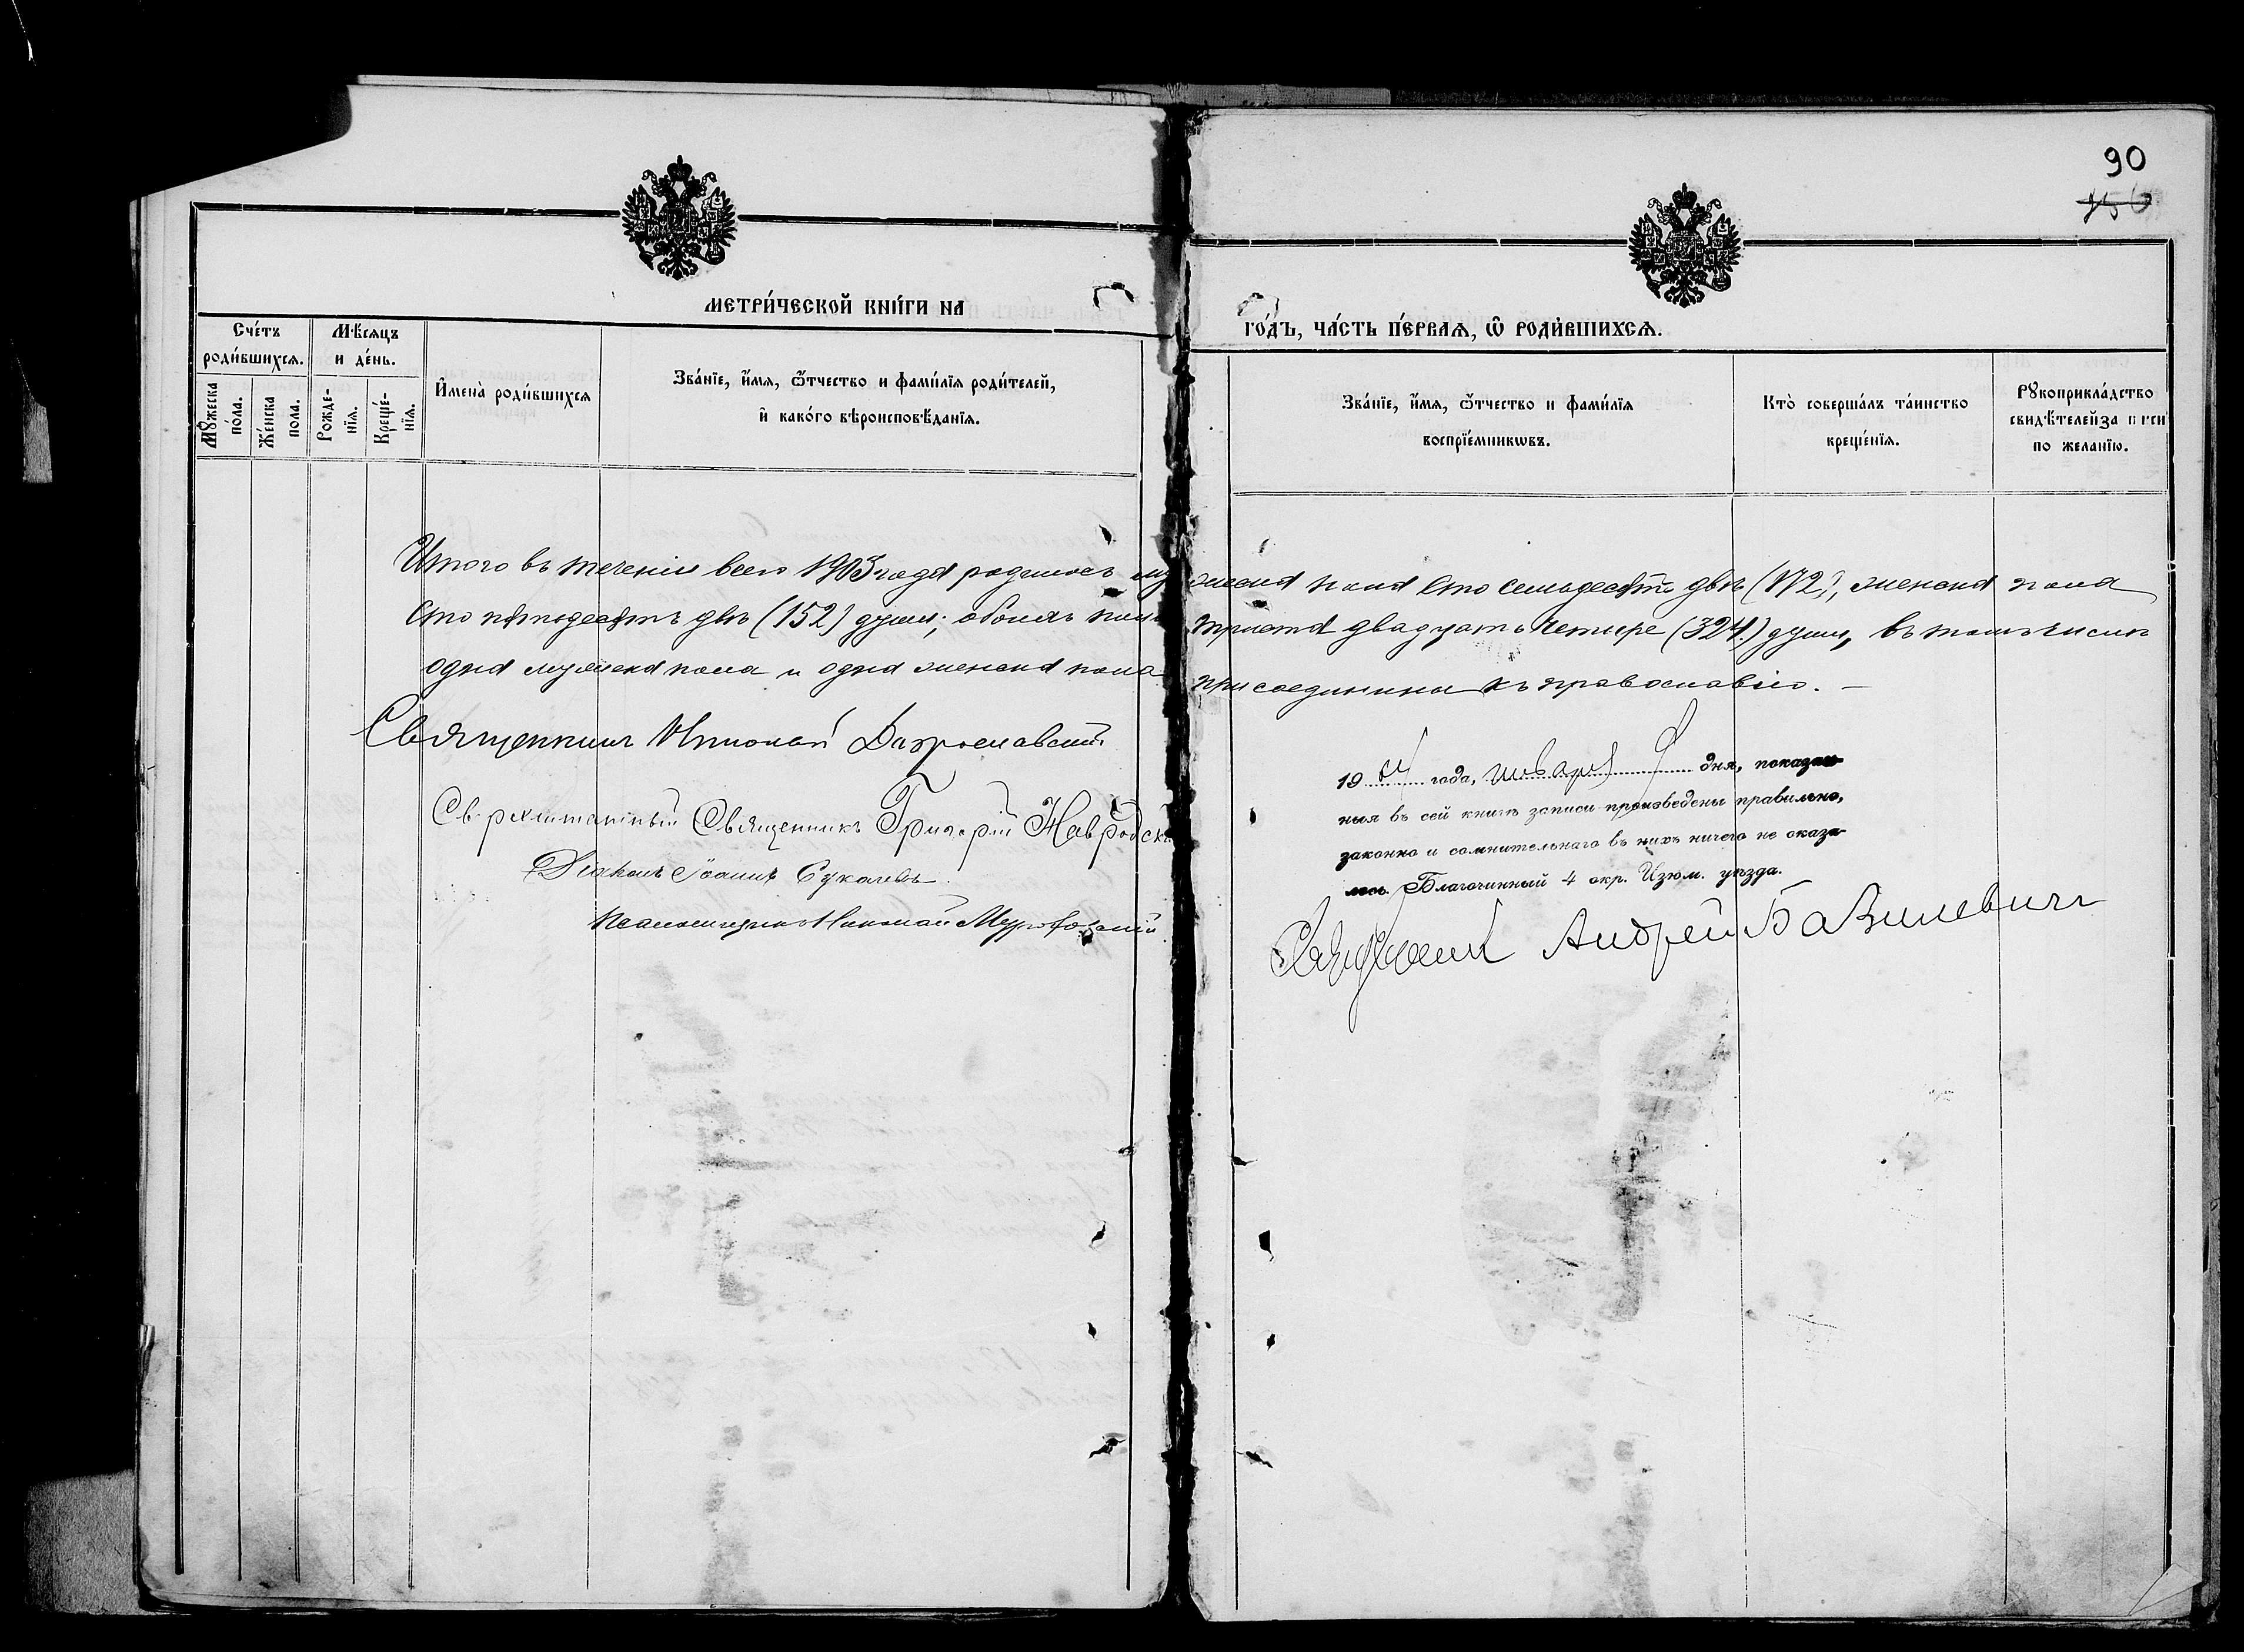 90
156
МЕТРИ́ЧЕСКОЙ КНИ́ГИ НА
ГО́ДЪ, ЧА́СТЬ ПЕ́РВАѦ, Ѽ РОДИ́ВШИХСѦ.
Сче́тъ роди́вшихсѧ.
Мѣ́сѧцъ и де́нь.
Мꙋ́жеска по́ла.
Же́нска по́ла.
Рожде́нїѧ.
Креще́нїѧ.
И҆мена̀ роди́вшихсѧ
Зва́нїе, и҆́мѧ, ѻ҆́тчество и фами́лїѧ роди́телей,
и҆ како́го вѣроисповѣ́данїѧ.
Зва́нїе, и҆́мѧ, ѻ҆́тчество и фами́лїѧ
воспрїе́мникѡвъ.
Кто̀ соверша́лъ та́инство
креще́нїѧ.
Рꙋкоприкла́дство
свидѣ́телей записи
по жела́нїю.
Итого въ теченіи всего 1903 года родилось мужеска пола сто семьдесятъ двѣ (172), женска пола
сто пятьдесятъ двѣ (152) души; обоихъ половъ триста двадцать четыре (324) души, въ томъ числѣ
одна мужеска пола и одна женска пола присоединены къ православію. —
Священникъ Николай
Сверхштатный Священникъ Григорій Навродскі
Діаконъ Іоаннъ Сукачевъ.
Псаломщикъ Николай
19 04 года, января 9 дня, показан-
ныя въ сей книгѣ записи произведены правильно,
законно и сомнительнаго въ нихъ ничего не оказа-
лось. Благочинный 4 окр. Изюм. уѣзда.
Священникъ Андрей Базилевичъ